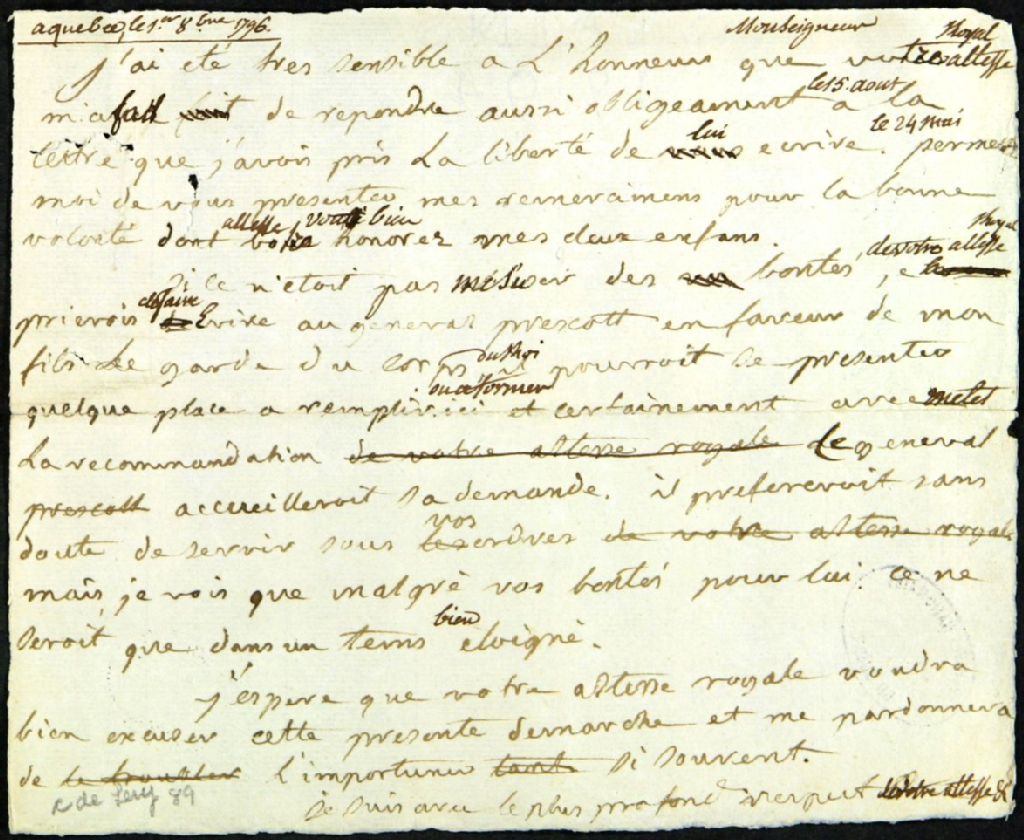 a quebec, le 1er 8bre 1796.
Monseigneur
j'ai été tres sensible a L'honneur que votre Royal altesse
m'a fait de repondre aussi obligeament le 15. aout a la
lettre que j'avois pris La liberté de lui ecrire. le 24 mai permettés
moi de vous presenter mes remercimens pour la bonne
volonté dont votre altesse veut bien honorer mes deux enfans.
si ce n'étoit pas mesuser des bontés de votre Royal altesse, je
prierois de faire Ecrire au general prescott en faveur de mon
fils Le garde du corps du Roi il pourroit se presenter
quelque place a remplir ici ou a former et certainement avec
La recommandation de votre altesse royale Le general
prescott accueilleroit sa demande. il prefereroit sans
doute de servir sous vos ordres de votre altesse royale
mais je vois que malgré vos bontés pour lui ce ne
seroit que dans un tems bien eloigné.
j'espere que votre altesse royale voudra
bien excuser cette presente demarche et me pardonnera
de le troubler l'importuner tant si souvent.
je suis avec le plus profond respect de votre altesse &c
c de Lery 89